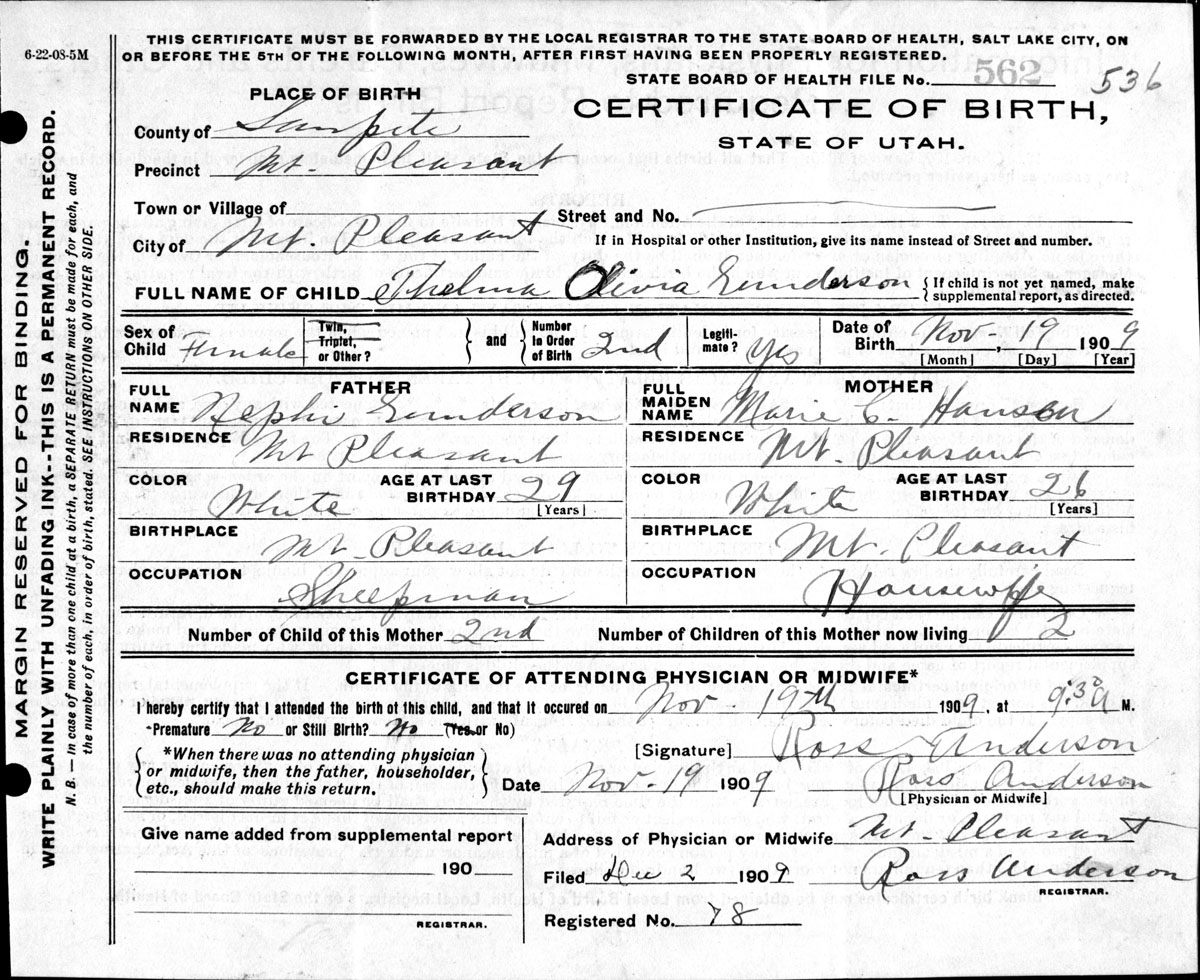 6-22-08-5M
THIS CERTIFICATE MUST BE FORWARDED BY THE LOCAL REGISTRAR TO THE STATE BOARD OF HEALTH, SALT LAKE CITY, ON
OR BEFORE THE 5TH OF THE FOLLOWING MONTH, AFTER FIRST HAVING BEEN PROPERLY REGISTERED.
STATE BOARD OF HEALTH FILE No. 562 536
PLACE OF BIRTH
CERTIFICATE OF BIRTH,
STATE OF UTAH.
County of Sanpete
Precinct Mt. Pleasant
Town or Village of
Street and No.
City of Mt. Pleasant
If in Hospital or other Institution, give its name instead of Street and number.
FULL NAME OF CHILD Thelma Olivia Gunderson { If child is not yet named, make
supplemental report, as directed.
Sex of Child Female
Twin, Triplet, or Other?
and
Number In Order of Birth 2nd
Legiti-mate? Yes
Date of Birth Nov - 19 1909
[Month] [Day] [Year]
FATHER
FULL NAME Nephi Gunderson
RESIDENCE Mt Pleasant
COLOR White
AGE AT LAST BIRTHDAY 29
[Years]
BIRTHPLACE Mt. Pleasant
OCCUPATION Sheepman
MOTHER
FULL MAIDEN NAME Marie C. Hansen
RESIDENCE Mt. Pleasant
COLOR White
AGE AT LAST BIRTHDAY 26
[Years]
BIRTHPLACE Mt. Pleasant
OCCUPATION Housewife
Number of Child of this Mother 2nd Number of Children of this Mother now living 2
CERTIFICATE OF ATTENDING PHYSICIAN OR MIDWIFE*
I hereby certify that I attended the birth of this child, and that it occured on Nov - 19th 1909, at 9:30 A M.
*Premature No or Still Birth? No (Yes or No)
{ *When there was no attending physician
or midwife, then the father, householder,
etc., should make this return. }
[Signature] Ross Anderson
Date Nov - 19 1909 Ross Anderson
[Physician or Midwife]
Give name added from supplemental report
190
REGISTRAR.
Address of Physician or Midwife Mt Pleasant
Filed Dec 2 1909 Ross Anderson
REGISTRAR.
Registered No. 78
MARGIN RESERVED FOR BINDING.
WRITE PLAINLY WITH UNFADING INK--THIS IS A PERMANENT RECORD.
N. B. — In case of more than one child at a birth, a SEPARATE RETURN must be made for each, and
the number of each, in order of birth, stated. SEE INSTRUCTIONS ON OTHER SIDE.